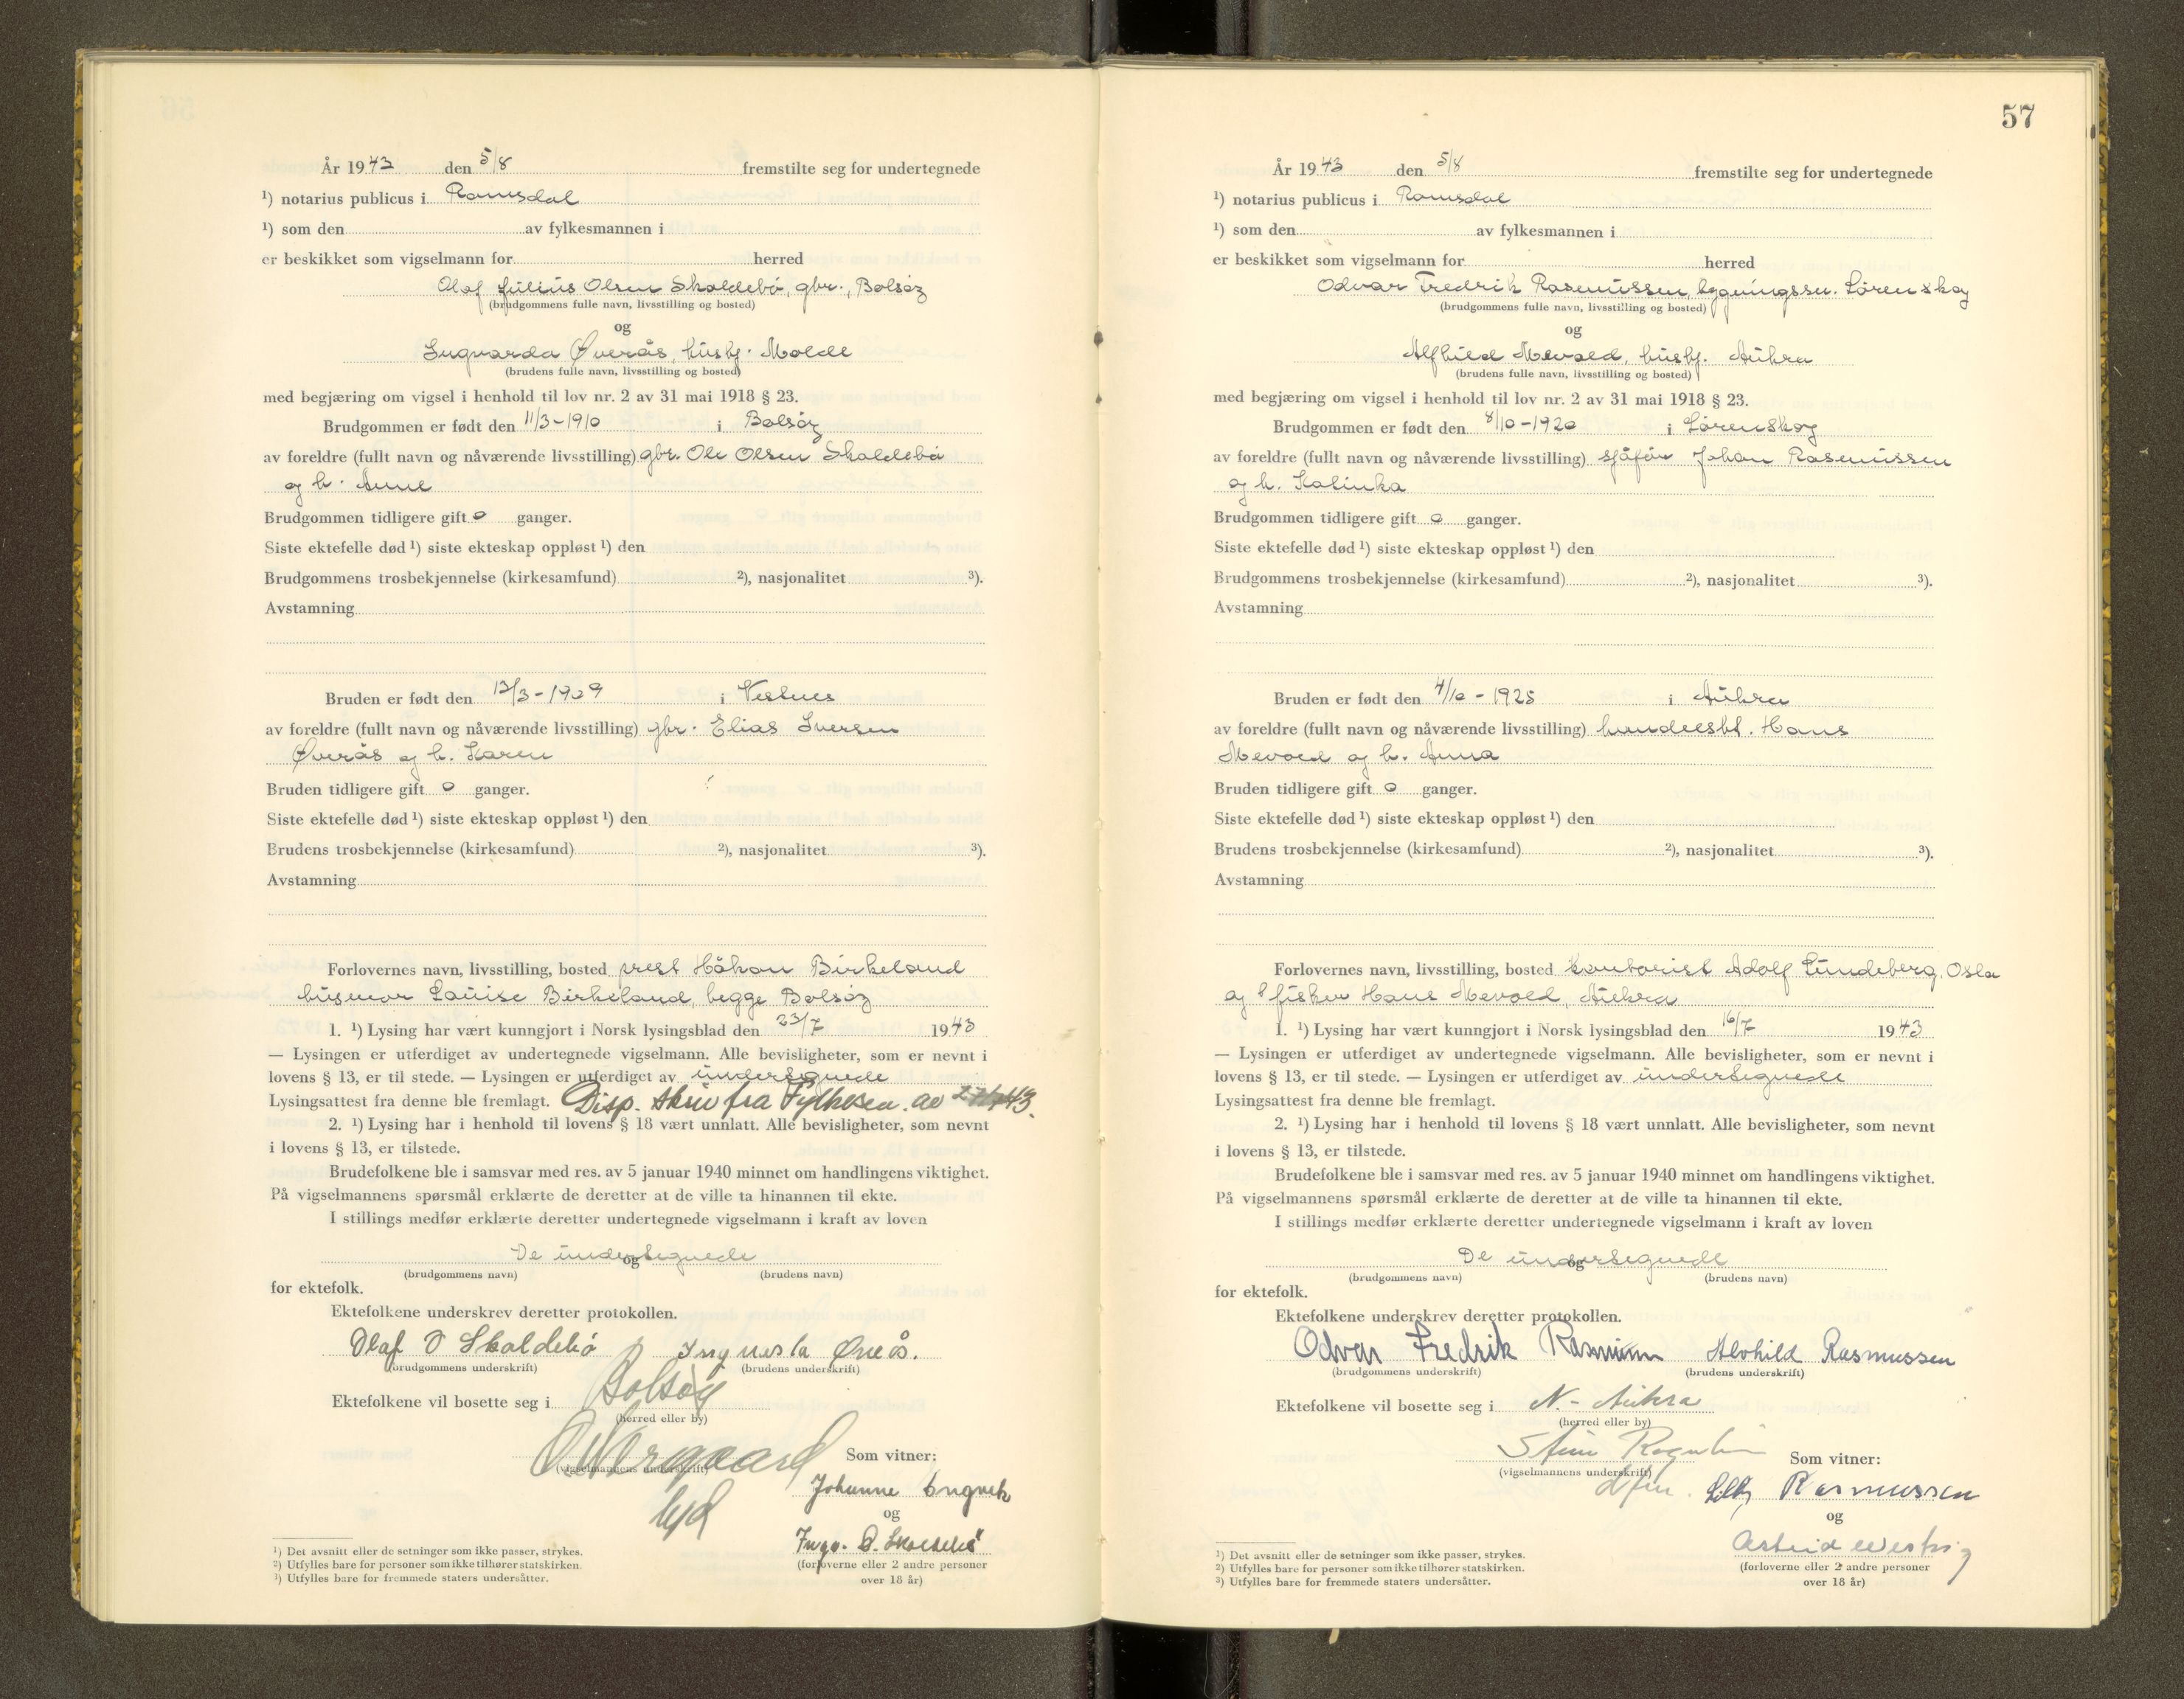 År 1943 den 5/8 fremstilte seg for undertegnede
¹) notarius publicus i Romsdal
¹) som den av fylkesmannen i
er beskikket som vigselmann for herred
Olaf Julius Olsen Skaldebø, gbr., Bolsøy
(brudgommens fulle navn, livsstilling og bosted)
og
Ingvarda Øverås, hush. Molde
(brudens fulle navn, livsstilling og bosted)
med begjæring om vigsel i henhold til lov nr. 2 av 31 mai 1918 § 23.
Brudgommen er født den 11/3-1910 i Bolsøy
av foreldre (fullt navn og nåværende livsstilling) gbr. Ole Olsen Skaldebø
og h. Anne
Brudgommen tidligere gift 0 ganger.
Siste ektefelle død ¹) siste ekteskap oppløst ¹) den
Brudgommens trosbekjennelse (kirkesamfund) ²), nasjonalitet ³).
Avstamning
Bruden er født den /3-1909 i Vestnes
av foreldre (fullt navn og nåværende livsstilling) gbr. Elias Iversen
Øverås og h. Karen
Bruden tidligere gift 0 ganger.
Siste ektefelle død ¹) siste ekteskap oppløst ¹) den
Brudens trosbekjennelse (kirkesamfund) ²), nasjonalitet ³).
Avstamning
Forlovernes navn, livsstilling, bosted prest Håkon Birkeland
husmor Louise Birkeland, begge Bolsøy
1. ¹) Lysing har vært kunngjort i Norsk lysingsblad den 23/7 1943
— Lysingen er utferdiget av undertegnede vigselmann. Alle bevisligheter, som er nevnt i
lovens § 13, er til stede. — Lysingen er utferdiget av undertegnede
Lysingsattest fra denne ble fremlagt. Disp. skriv fra Fylkesm. av 43.
2. ¹) Lysing har i henhold til lovens § 18 vært unnlatt. Alle bevisligheter, som nevnt
i lovens § 13, er tilstede.
Brudefolkene ble i samsvar med res. av 5 januar 1940 minnet om handlingens viktighet.
På vigselmannens spørsmål erklærte de deretter at de ville ta hinannen til ekte.
I stillings medfør erklærte deretter undertegnede vigselmann i kraft av loven
De undertegnede
og
(brudgommens navn) (brudens navn)
for ektefolk.
Ektefolkene underskrev deretter protokollen.
Olaf O Skaldebø Øverås.
(brudgommens underskrift) (brudens underskrift)
Ektefolkene vil bosette seg i Bolsøy
(herred eller by)
Som vitner:
(vigselmannens underskrift)
Johanne
og
Skaldebø
(forloverne eller 2 andre personer
over 18 år)
¹) Det avsnitt eller de setninger som ikke passer, strykes.
²) Utfylles bare for personer som ikke tilhører statskirken.
³) Utfylles bare for fremmede staters undersåtter.
57
År 1943 den 5/8 fremstilte seg for undertegnede
¹) notarius publicus i Romsdal
¹) som den av fylkesmannen i
er beskikket som vigselmann for herred
Odvar Fredrik Rasmussen, bygningssn. Lørenskog
(brudgommens fulle navn, livsstilling og bosted)
og
Alfhild Mevold, hush. Aukra
(brudens fulle navn, livsstilling og bosted)
med begjæring om vigsel i henhold til lov nr. 2 av 31 mai 1918 § 23.
Brudgommen er født den 8/10-1920 i Lørenskog
av foreldre (fullt navn og nåværende livsstilling) sjåfør Johan Rasmussen
og h. Kalinka
Brudgommen tidligere gift 0 ganger.
Siste ektefelle død ¹) siste ekteskap oppløst ¹) den
Brudgommens trosbekjennelse (kirkesamfund) ²), nasjonalitet ³).
Avstamning
Bruden er født den 4/10-1925 i Aukra
av foreldre (fullt navn og nåværende livsstilling) handelsbt. Hans
Mevold og h. Anna
Bruden tidligere gift 0 ganger.
Siste ektefelle død ¹) siste ekteskap oppløst ¹) den
Brudens trosbekjennelse (kirkesamfund) ²), nasjonalitet ³).
Avstamning
Forlovernes navn, livsstilling, bosted kontorist Adolf Lundeberg, Oslo
og fisker Hans Mevold, Aukra
1. ¹) Lysing har vært kunngjort i Norsk lysingsblad den 16/7 1943
— Lysingen er utferdiget av undertegnede vigselmann. Alle bevisligheter, som er nevnt i
lovens § 13, er til stede. — Lysingen er utferdiget av undertegnede
Lysingsattest fra denne ble fremlagt.
2. ¹) Lysing har i henhold til lovens § 18 vært unnlatt. Alle bevisligheter, som nevnt
i lovens § 13, er tilstede.
Brudefolkene ble i samsvar med res. av 5 januar 1940 minnet om handlingens viktighet.
På vigselmannens spørsmål erklærte de deretter at de ville ta hinannen til ekte.
I stillings medfør erklærte deretter undertegnede vigselmann i kraft av loven
De undertegnede
og
(brudgommens navn) (brudens navn)
for ektefolk.
Ektefolkene underskrev deretter protokollen.
Odvar Fredrik Rasmussen Alvhild Rasmussen
(brudgommens underskrift) (brudens underskrift)
Ektefolkene vil bosette seg i N.-Aukra
(herred eller by)
Som vitner:
(vigselmannens underskrift)
Lilly Rasmussen
og
Astrid
(forloverne eller 2 andre personer
over 18 år)
¹) Det avsnitt eller de setninger som ikke passer, strykes.
²) Utfylles bare for personer som ikke tilhører statskirken.
³) Utfylles bare for fremmede staters undersåtter.